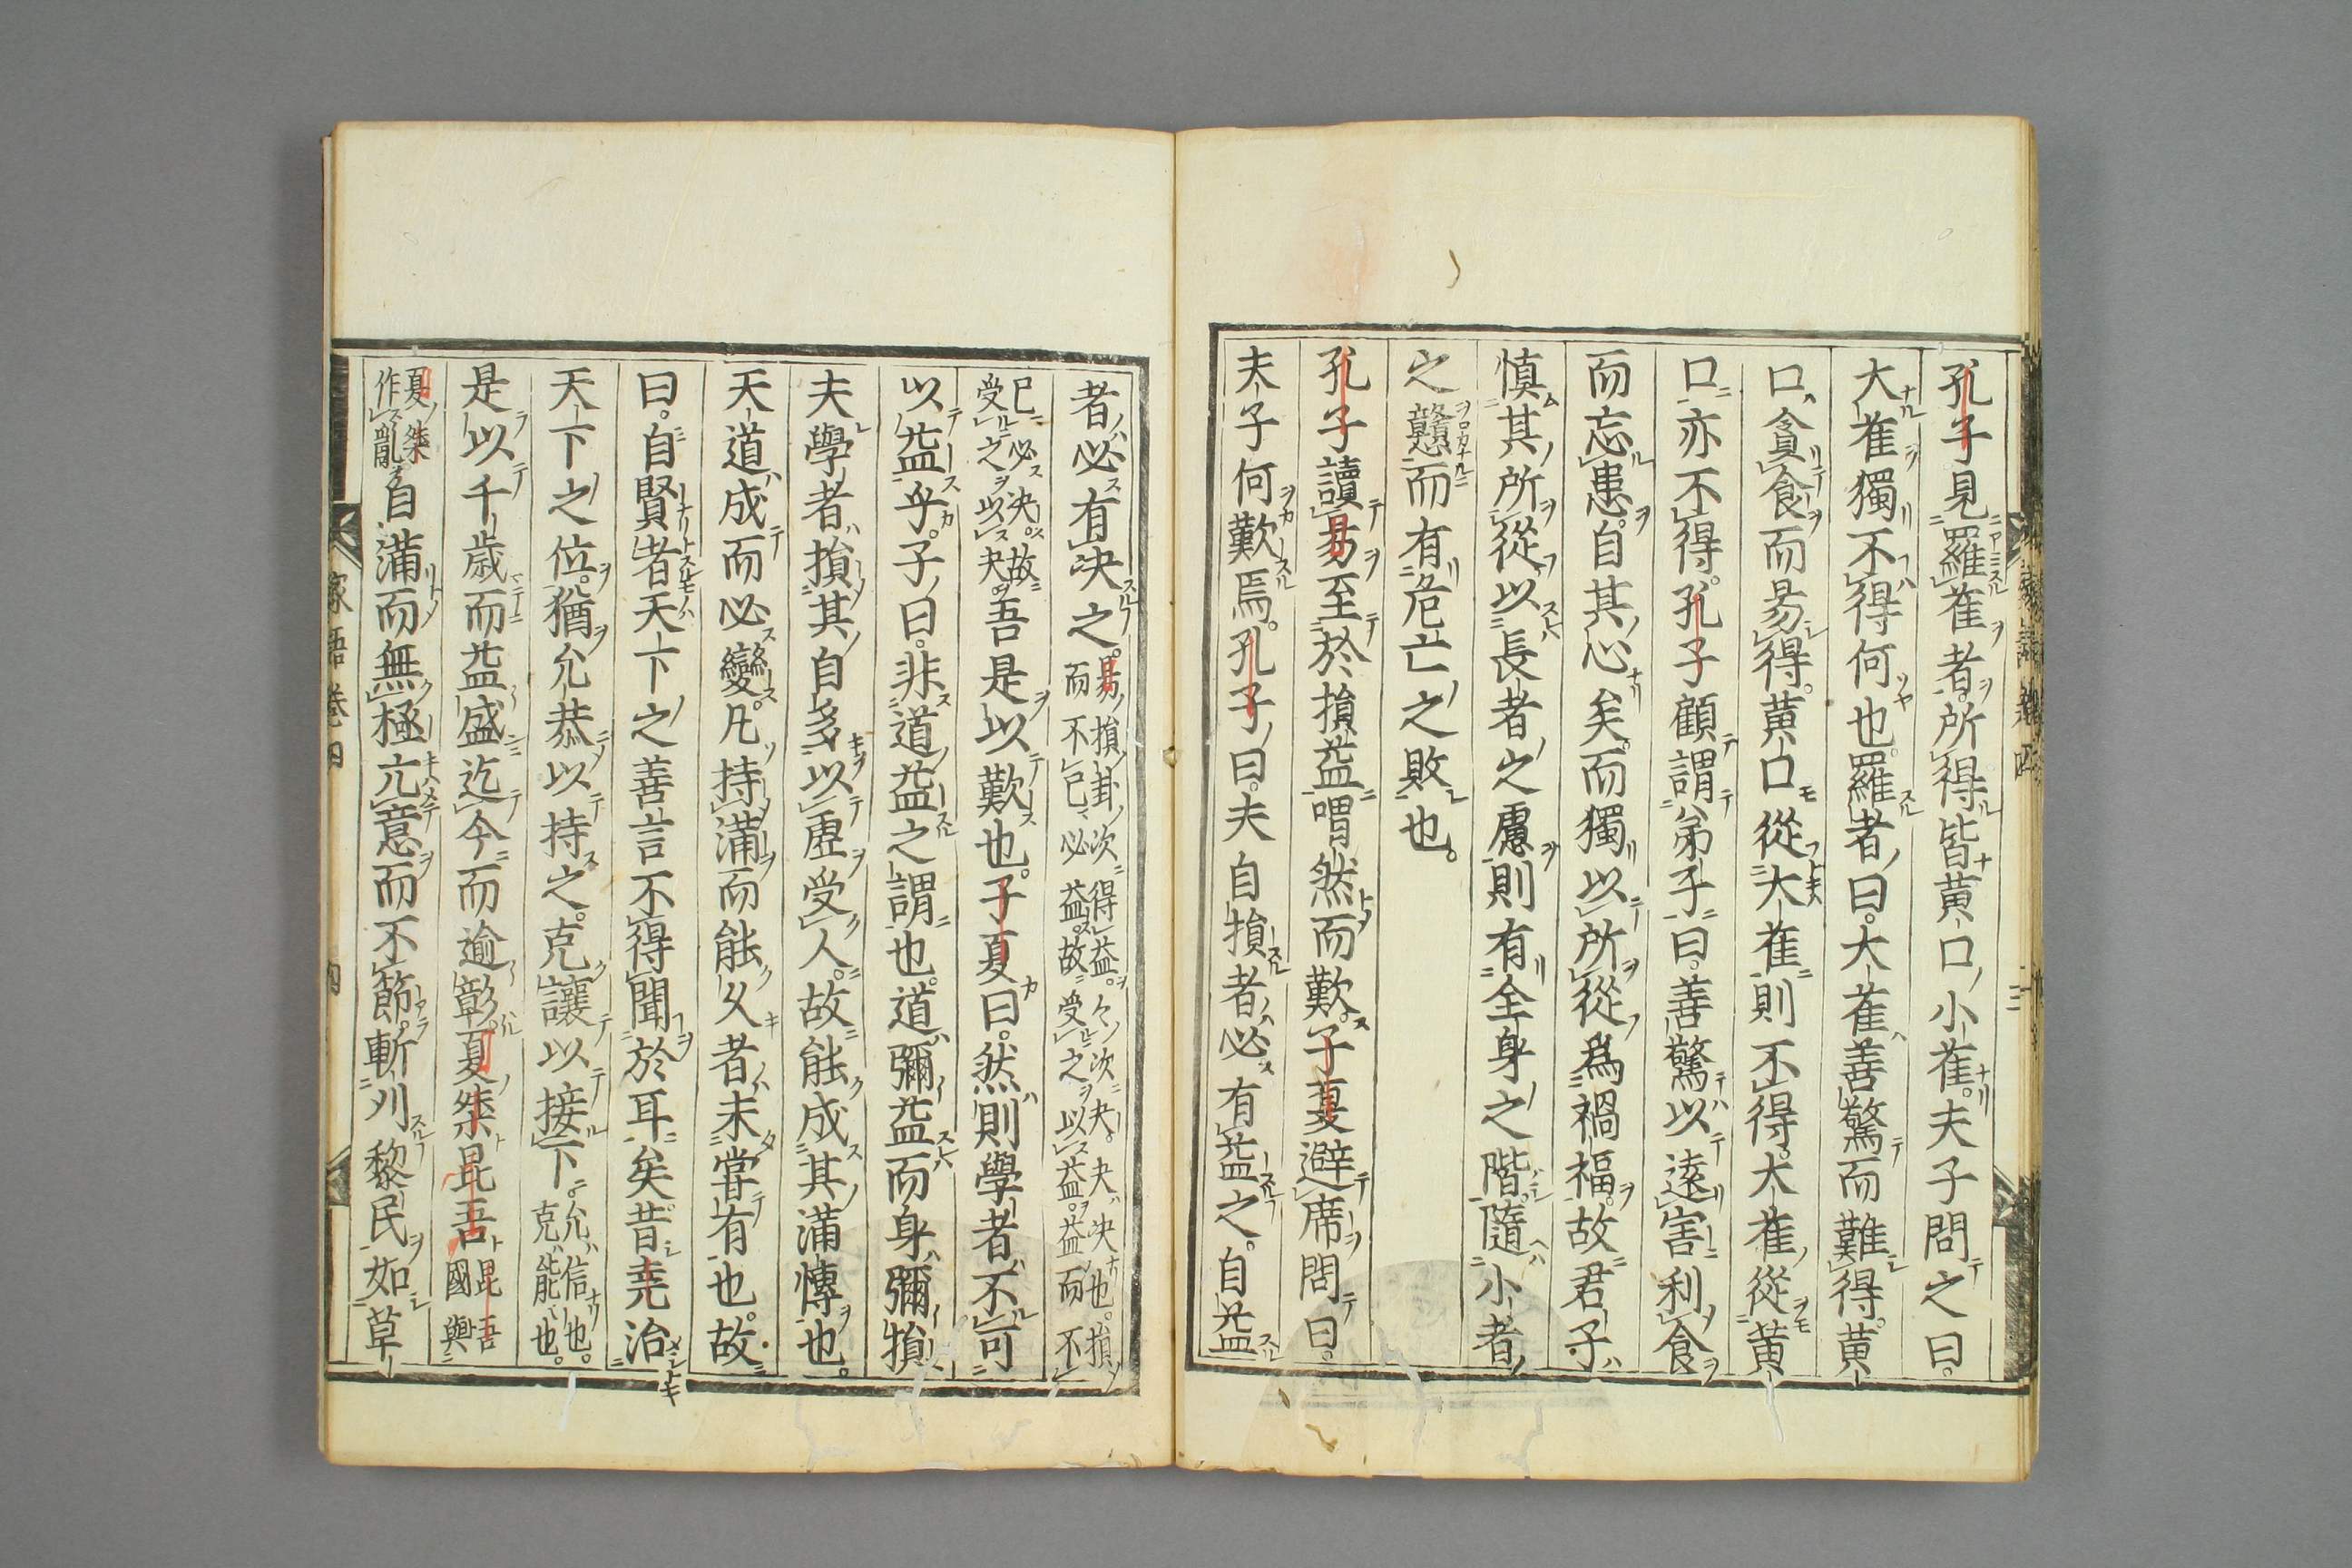 孔子見羅雀者所得皆黃口小雀。夫子問之曰。
大雀獨不得何也。羅者曰。大雀善驚而難得。黃
口貪食而易得。黃口從大雀則不得。大雀從黃
口亦不得。孔子顧謂弟子曰。善驚以遠害利食
而忘患。自其心矣。而獨以所從爲禍福。故君子
慎其所從以長者之慮則有全身之階。隨小者
之戇而有危亡之敗也。
孔子讀易至於損益喟然而歎。子夏避席問曰。
夫子何歎焉。孔子曰。夫自損者必有益之。自益
者必有決之。易損卦次得益。益次夬。夬決也。損而不已必益。故受之以益。益而不
已必決。故受之以夬。吾是以歎也。子夏曰。然則學者不可
以益乎。子曰。非道益之謂也。道彌益而身彌損
夫學者損其自多以虛受人。故能成其滿博也。
天道成而必變。凡持滿而能久者未嘗有也。故
曰。自賢者天下之善言不得聞於耳矣。昔堯治
天下之位。猶允恭以持之。克讓以接下。允信也。克能也。
是以千歲而益盛迄今而逾彰。夏桀昆吾昆吾國與
夏桀作亂自滿而無極亢意而不節。斬刈黎民如草
家語卷四
四
三